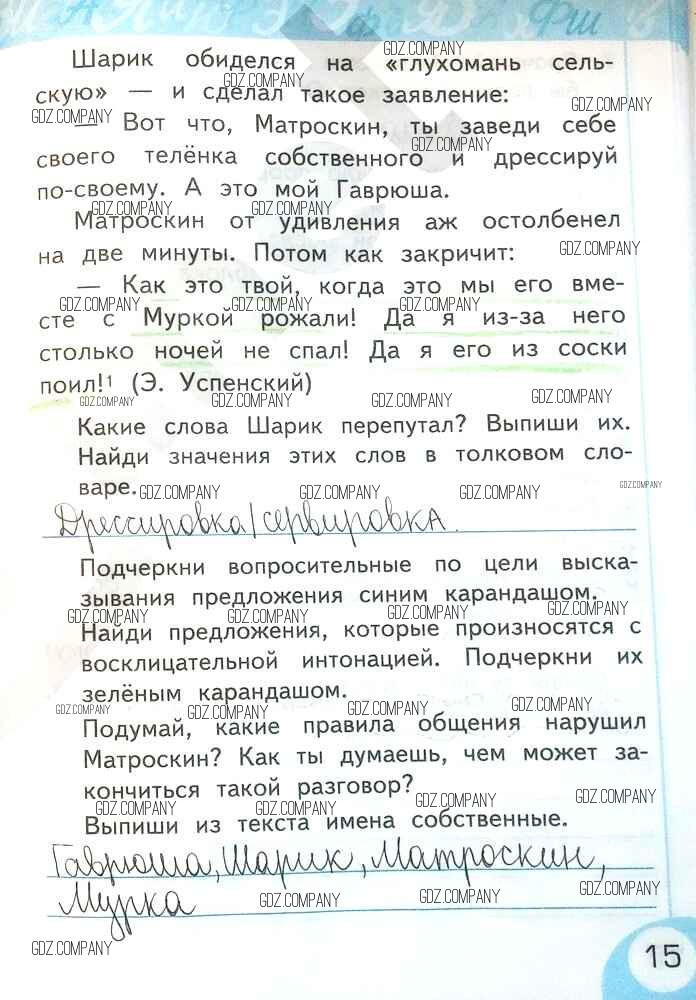 Шарик обиделся на «глухомань сель-
скую» — и сделал такое заявление:
— Вот что, Матроскин, ты заведи себе
своего телёнка собственного и дрессируй
по-своему. А это мой Гаврюша.
Матроскин от удивления аж остолбенел
на две минуты. Потом как закричит:
— Как это твой, когда это мы его вме-
сте с Муркой рожали! Да я из-за него
столько ночей не спал! Да я его из соски
поил!¹ (Э. Успенский)
Какие слова Шарик перепутал? Выпиши их.
Найди значения этих слов в толковом сло-
варе.
Дрессировка/сервировка.
Подчеркни вопросительные по цели выска-
зывания предложения синим карандашом.
Найди предложения, которые произносятся с
восклицательной интонацией. Подчеркни их
зелёным карандашом.
Подумай, какие правила общения нарушил
Матроскин? Как ты думаешь, чем может за-
кончиться такой разговор?
Выпиши из текста имена собственные.
Гаврюша, Шарик, Матроскин,
Мурка
15
GDZ.COMPANY